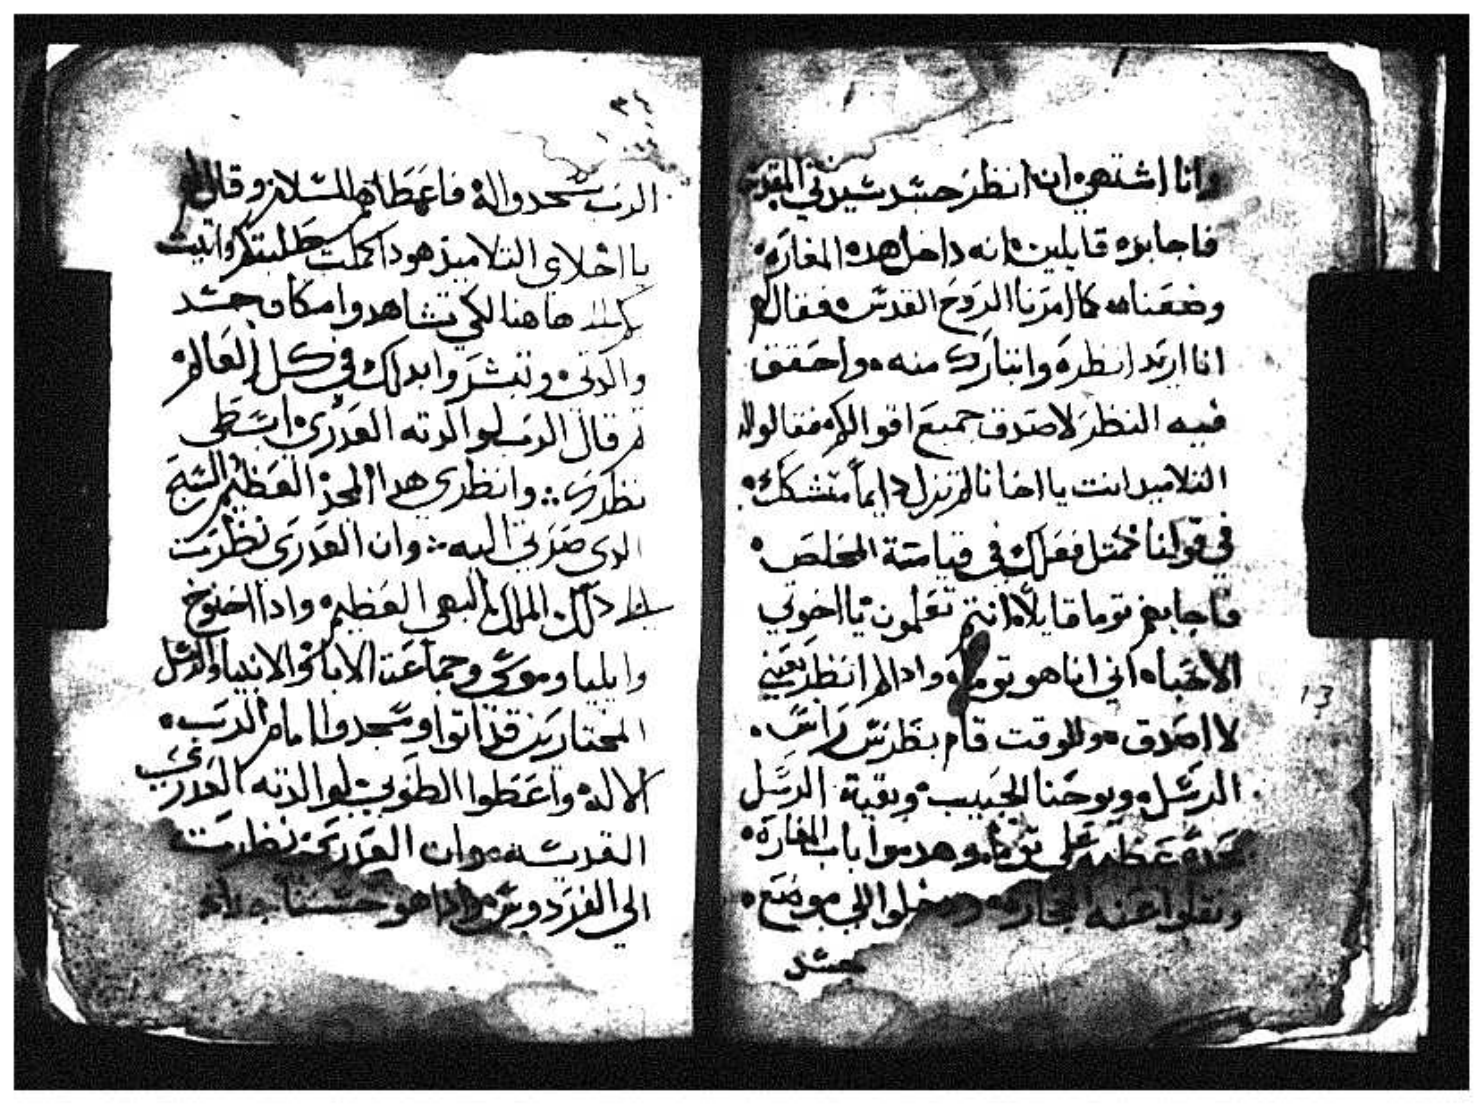 وانا اشتهي ان انظر جسد ستي القد
فاجابوه قايلين انه داخل هده المغاره
وضعناه كما امرنا الروح القدس فقال لهم
انا اريد انظره واتبارك منه واحقق
فيه النظر لاصدق جميع اقوالكم فقالوا له
التلاميد انت يا اخانا لم تزل دايماً متشكك
في قولنا كمثل فعلك في قيامة المخلص
فاجابهم توما قايلاً انتم تعلمون يا اخوتي
الاحباء اني انا هو توما وادا لم انظر بعيني
لا اصدق وللوقت قام بطرس راس
الرسل ويوحنا الحبيب وبقية الرسل
بحده عظيمه على توما وهدموا باب المغاره
ونقلوا عنه الحجاره ودخلوا الي موضع
جسد
13
الرب سجدوا له فاعطاهم السلام وقال لهم
يا اخلاي التلاميد هودا كملت طلبتكم واتيت
بكم ها هنا لكي تشاهدوا مكان جسد
والدتي وتبشروا بدلك في كل العالم
تم قال الرب لوالدته العدرى ابسطي
نظرك وانظري هدا المجد العظيم
الدي صرتي اليه وان العدرى نظرت
دلك الملك البهي العظيم وادا اخنوخ
وايليا وموسي وجماعة الابا والانبيا والرسل
المختارين قد اتوا وسجدوا امام الرب
الاله واعطوا الطوبى لوالدته العدرى
القديسه وان العدرى نظرت
الي الفردوس وادا هو